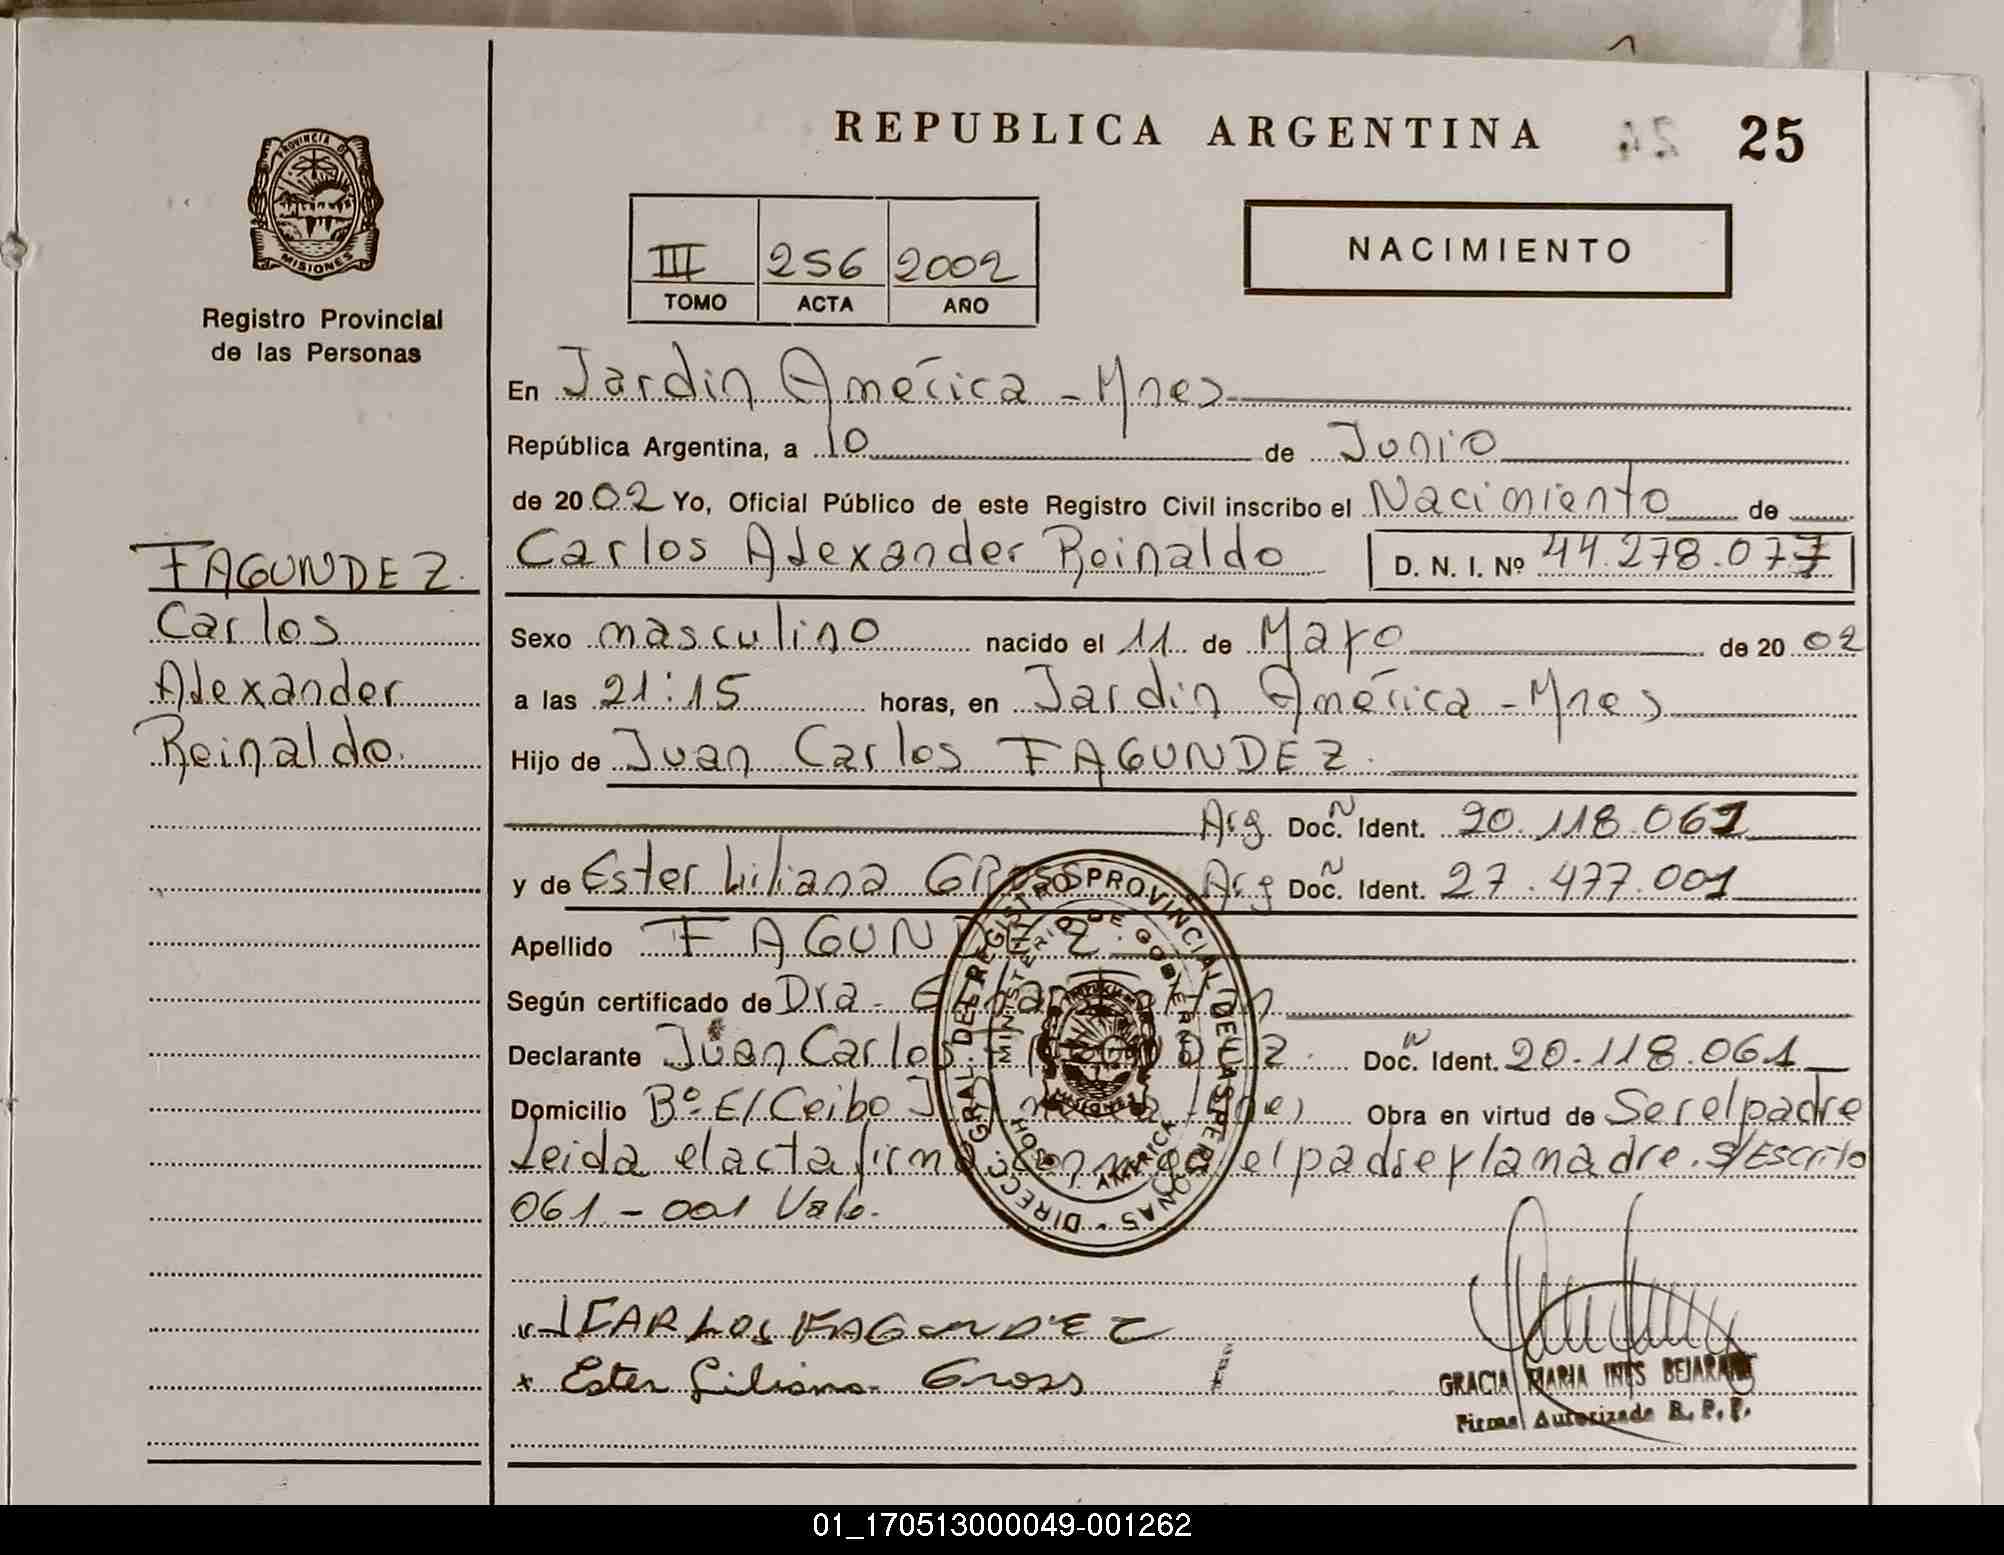 REPUBLICA ARGENTINA 25
PROVINCIA DE
MISIONES
Registro Provincial
de las Personas
III 256 2002
TOMO ACTA AÑO
NACIMIENTO
En Jardin América - Mnes
República Argentina, a 10 de Junio
de 2002 Yo, Oficial Público de este Registro Civil inscribo el Nacimiento de
Carlos Alexander Reinaldo D. N. I. Nº 44.278.077
FAGUNDEZ.
Carlos
Alexander
Reinaldo.
Sexo masculino nacido el 11 de Mayo de 2002
a las 21:15 horas, en Jardin América - Mnes
Hijo de Juan Carlos FAGUNDEZ.
Arg. Doc. Ident. 20.118.061
y de Ester Liliana GROSS Arg Doc. Ident. 27.477.001
Apellido FAGUNDEZ.
Según certificado de Dra.
Declarante Juan Carlos FAGUNDEZ. Doc. Ident. 20.118.061
Domicilio Bº El Ceibo Obra en virtud de Ser el padre
Leida el acta firma el padre y la madre. S/Escrito
061 - 001 Vale.
DIRECC. GRAL. DEL REGISTRO PROVINCIAL DE LAS PERSONAS
MINISTERIO DE GOBIERNO
J. AMERICA
MISIONES
J CARLOS FAGUNDEZ
x Ester Liliana Gross
GRACIA MARIA INES BEJARANO
Firma Autorizada R. P. P.
01_170513000049-001262